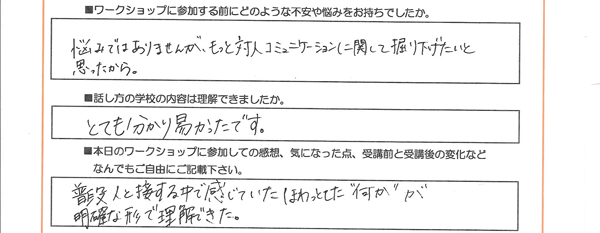 ■ワークショップに参加する前にどのような不安や悩みをお持ちでしたか。
悩みではありませんが、もっと対人コミュニケーションに関して掘り下げたいと
思ったから。
■話し方の学校の内容は理解できましたか。
とても分かり易かったです。
■本日のワークショップに参加しての感想、気になった点、受講前と受講後の変化など
なんでもご自由にご記載下さい。
普段人と接する中で感じていたほわっとした"何か"が
明確な形で理解できた。